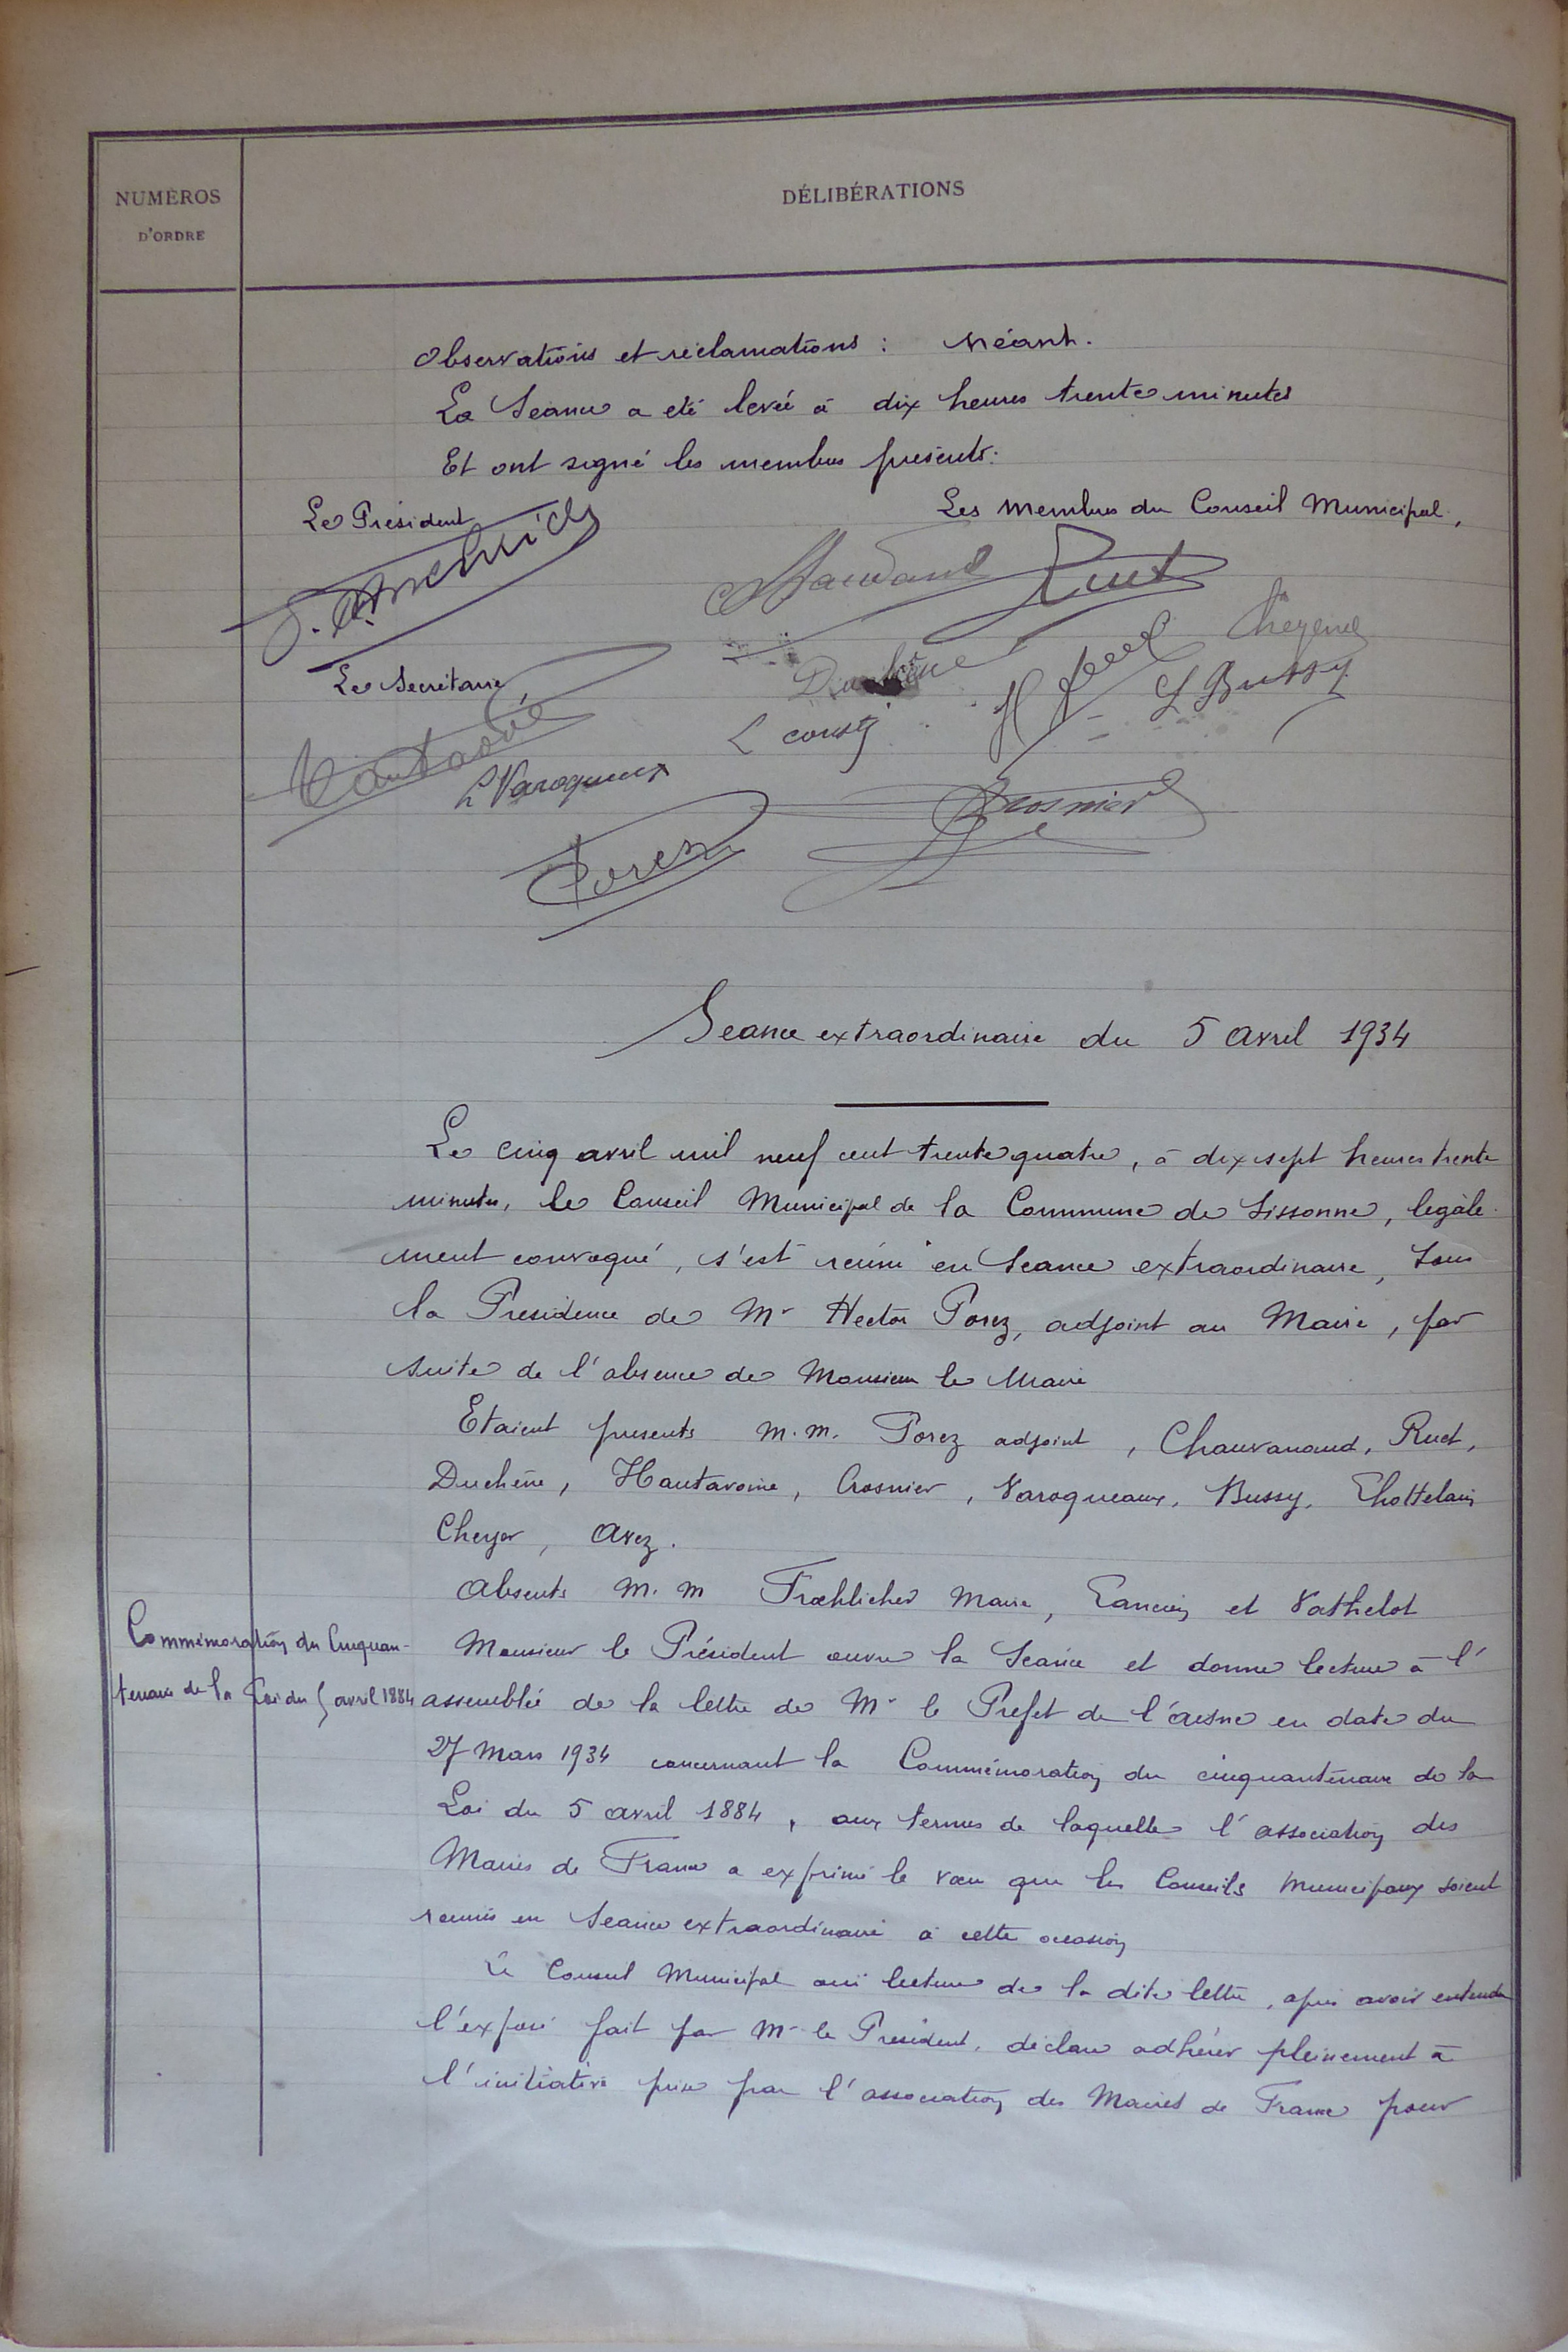 NUMÉROS
D'ORDRE
DÉLIBÉRATIONS
Observations et réclamations : Néant.
La Séance a été levée à dix heures trente minutes
Et ont signé les membres présents.
Le Président
Les Membres du Conseil Municipal,
Ruet
Le Secrétaire
Duchêne
L Bussy
Hautavoine
L Varoqueaux
Crosnier
Porez
Seance extraordinaire du 5 Avril 1934
Le cinq avril mil neuf cent trente quatre, à dix sept heures trente
minutes, le Conseil Municipal de la Commune de Sissonne, légale-
ment convoqué, s'est réuni en Seance extraordinaire, sous
la Presidence de Mr Hector Porez, adjoint au Maire, par
suite de l'absence de Monsieur le Maire
Etaient presents M.M. Porez adjoint, Chauvanaud, Ruet,
Duchêne, Hautavoine, Crosnier, Varoqueaux, Bussy,
Cheyer, Avez.
Absents M. M Froehlicher Maire, et Vathelot
Commémoration du Cinquan-
tenaire de la Loi du 5 avril 1884
Monsieur le Président ouvre la Seance et donne lecture à l'
assemblée de la lettre de Mr le Prefet de l'Aisne en date du
27 Mars 1934 concernant la Commémoration du cinquantenaire de la
Loi du 5 Avril 1884, aux termes de laquelle l'association des
Maires de France a exprimé le voeu que les Conseils Municipaux soient
reunis en Seance extraordinaire à cette occasion
Le Conseil Municipal ouï lecture de la dite lettre, après avoir entendu
l'exposé fait par Mr le President, déclare adhérer pleinement à
l'initiative prise par l'association des Maires de France pour